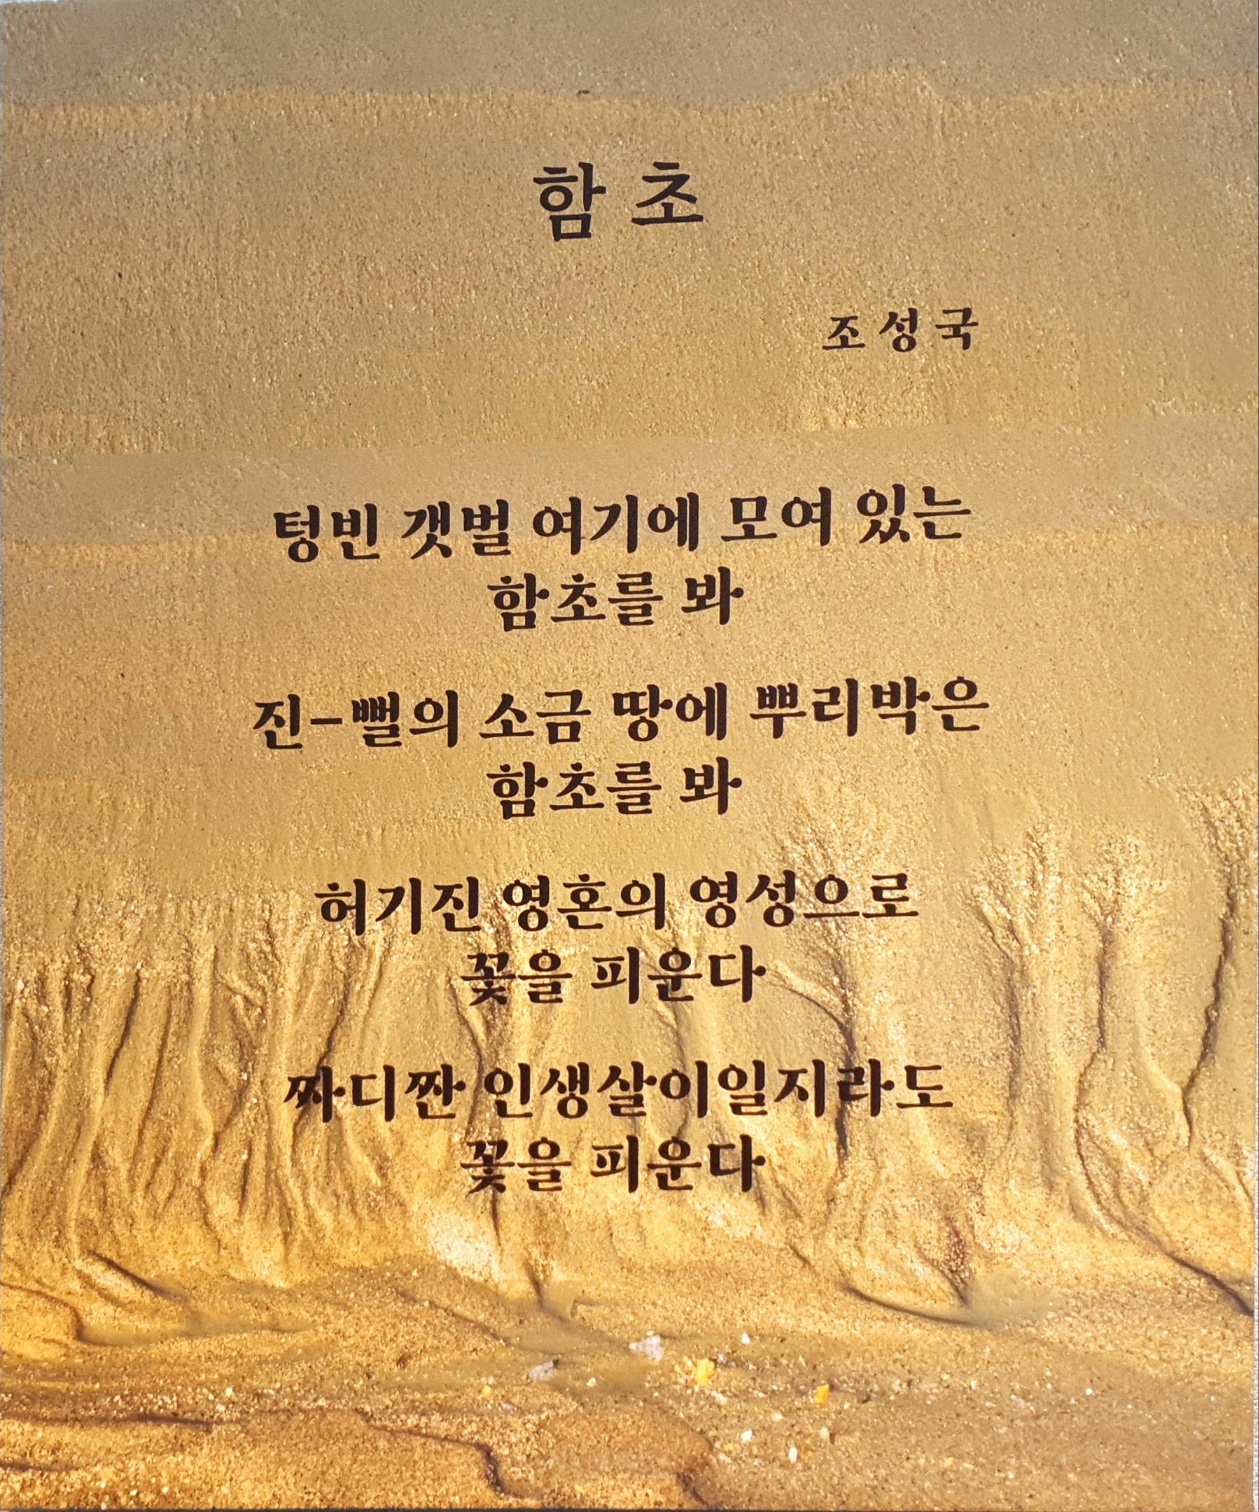 함초
조성국
텅빈 갯벌 여기에 모여 있는
함초를 봐
진-뻘의 소금 땅에 뿌리박은
함초를 봐
허기진 영혼의 영성으로
꽃을 피운다
짜디짠 인생살이일지라도
꽃을 피운다